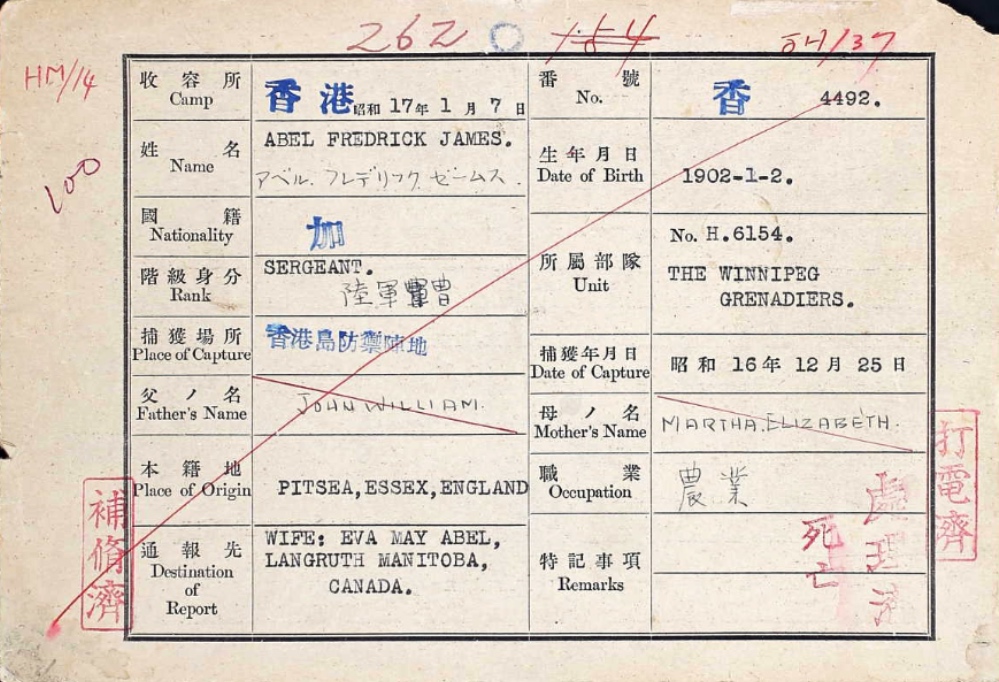 262 154
HM/14
100
收容所
Camp
香港 昭和 17年 1月 7日
番號
No.
香 4492.
姓名
Name
ABEL FREDRICK JAMES.
アベル. フレデリック ゼームス.
生年月日
Date of Birth
1902-1-2.
國籍
Nationality
加
階級身分
Rank
SERGEANT.
陸軍 曹
所屬部隊
Unit
No. H.6154.
THE WINNIPEG
GRENADIERS.
捕獲場所
Place of Capture
香港島防禦陣地
捕獲年月日
Date of Capture
昭和 16年 12月 25日
父ノ名
Father's Name
JOHN WILLIAM.
母ノ名
Mother's Name
MARTHA.ELIZABETH.
本籍地
Place of Origin
PITSEA,ESSEX,ENGLAND
職業
Occupation
農業
通報先
Destination
of
Report
WIFE: EVA MAY ABEL,
LANGRUTH MANITOBA,
CANADA.
特記事項
Remarks
死亡
處理済
補修濟
打電濟